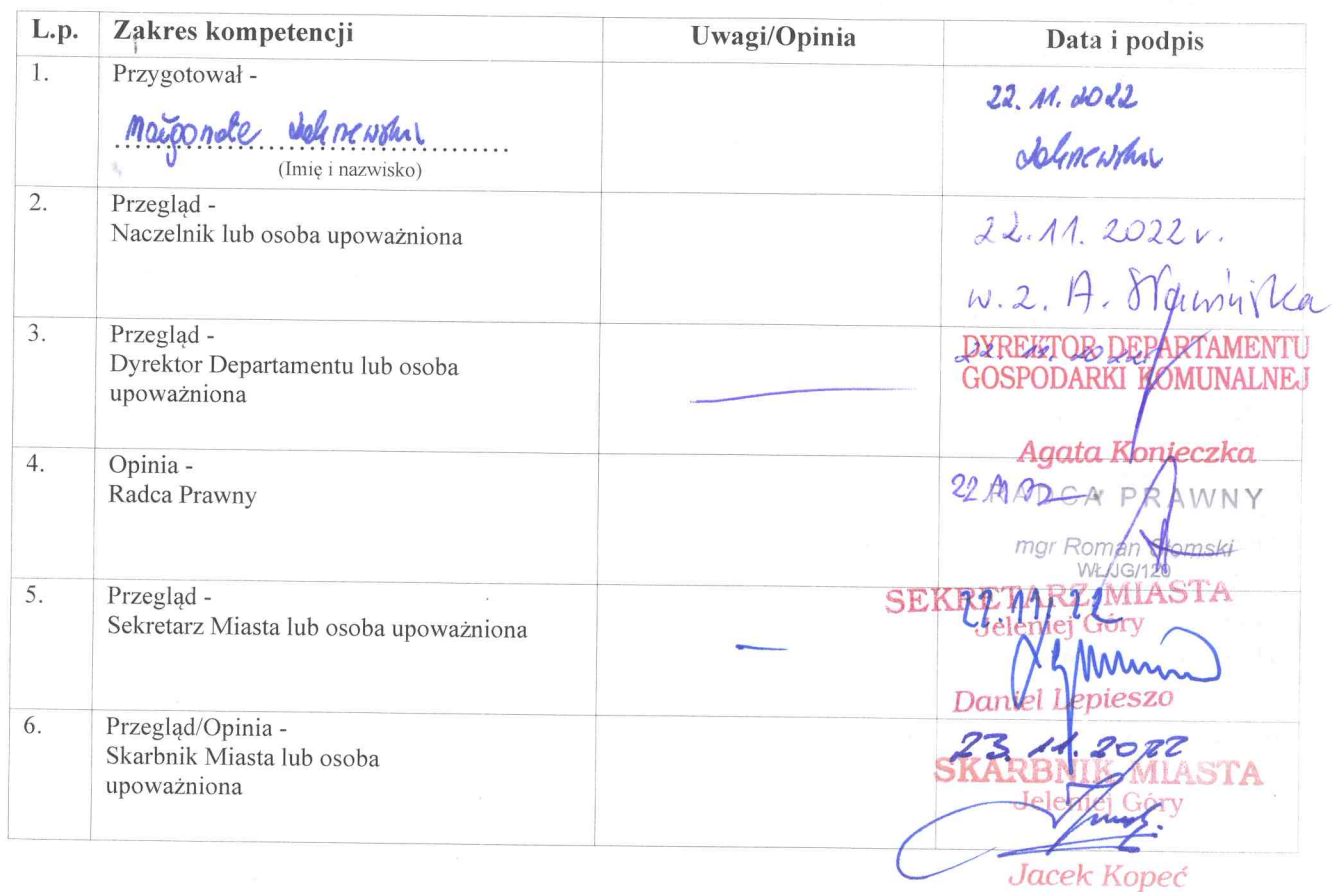 L.p. Zakres kompetencji Uwagi/Opinia Data i podpis
1. Przygotował -
22. 11. 2022
(Imię i nazwisko)
2. Przegląd -
Naczelnik lub osoba upoważniona
22.11. 2022 r.
w. z. A.
3. Przegląd -
Dyrektor Departamentu lub osoba
upoważniona
DYREKTOR DEPARTAMENTU
22. 11. 2022
GOSPODARKI KOMUNALNEJ
Agata Konieczka
4. Opinia -
Radca Prawny
RADCA PRAWNY
mgr Roman Słomski
WŁ/JG/120
5. Przegląd -
Sekretarz Miasta lub osoba upoważniona
SEKRETARZ MIASTA
22.11.22
Jeleniej Góry
Daniel Lepieszo
6. Przegląd/Opinia -
Skarbnik Miasta lub osoba
upoważniona
23. 11. 2022
SKARBNIK MIASTA
Jeleniej Góry
Jacek Kopeć